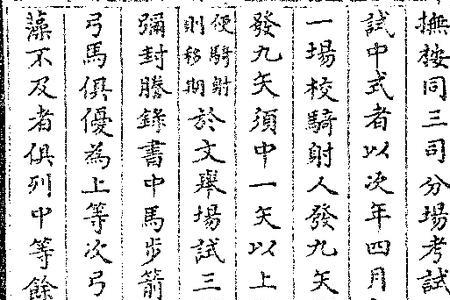 撫按同三司分場考試
試中式者以次年四月
一場校騎射人發九矢
發九矢須中一矢以上
便騎射
則移期
於文舉場試三
彌封謄錄書中馬步箭
弓馬俱優為上等次弓
藻不及者俱列中等餘